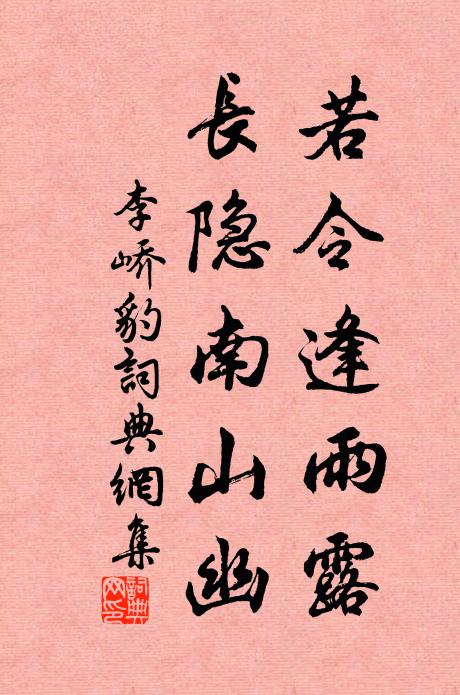 若令逢雨露
長隐南山幽
李嶠豹詞典網集
詞典网印